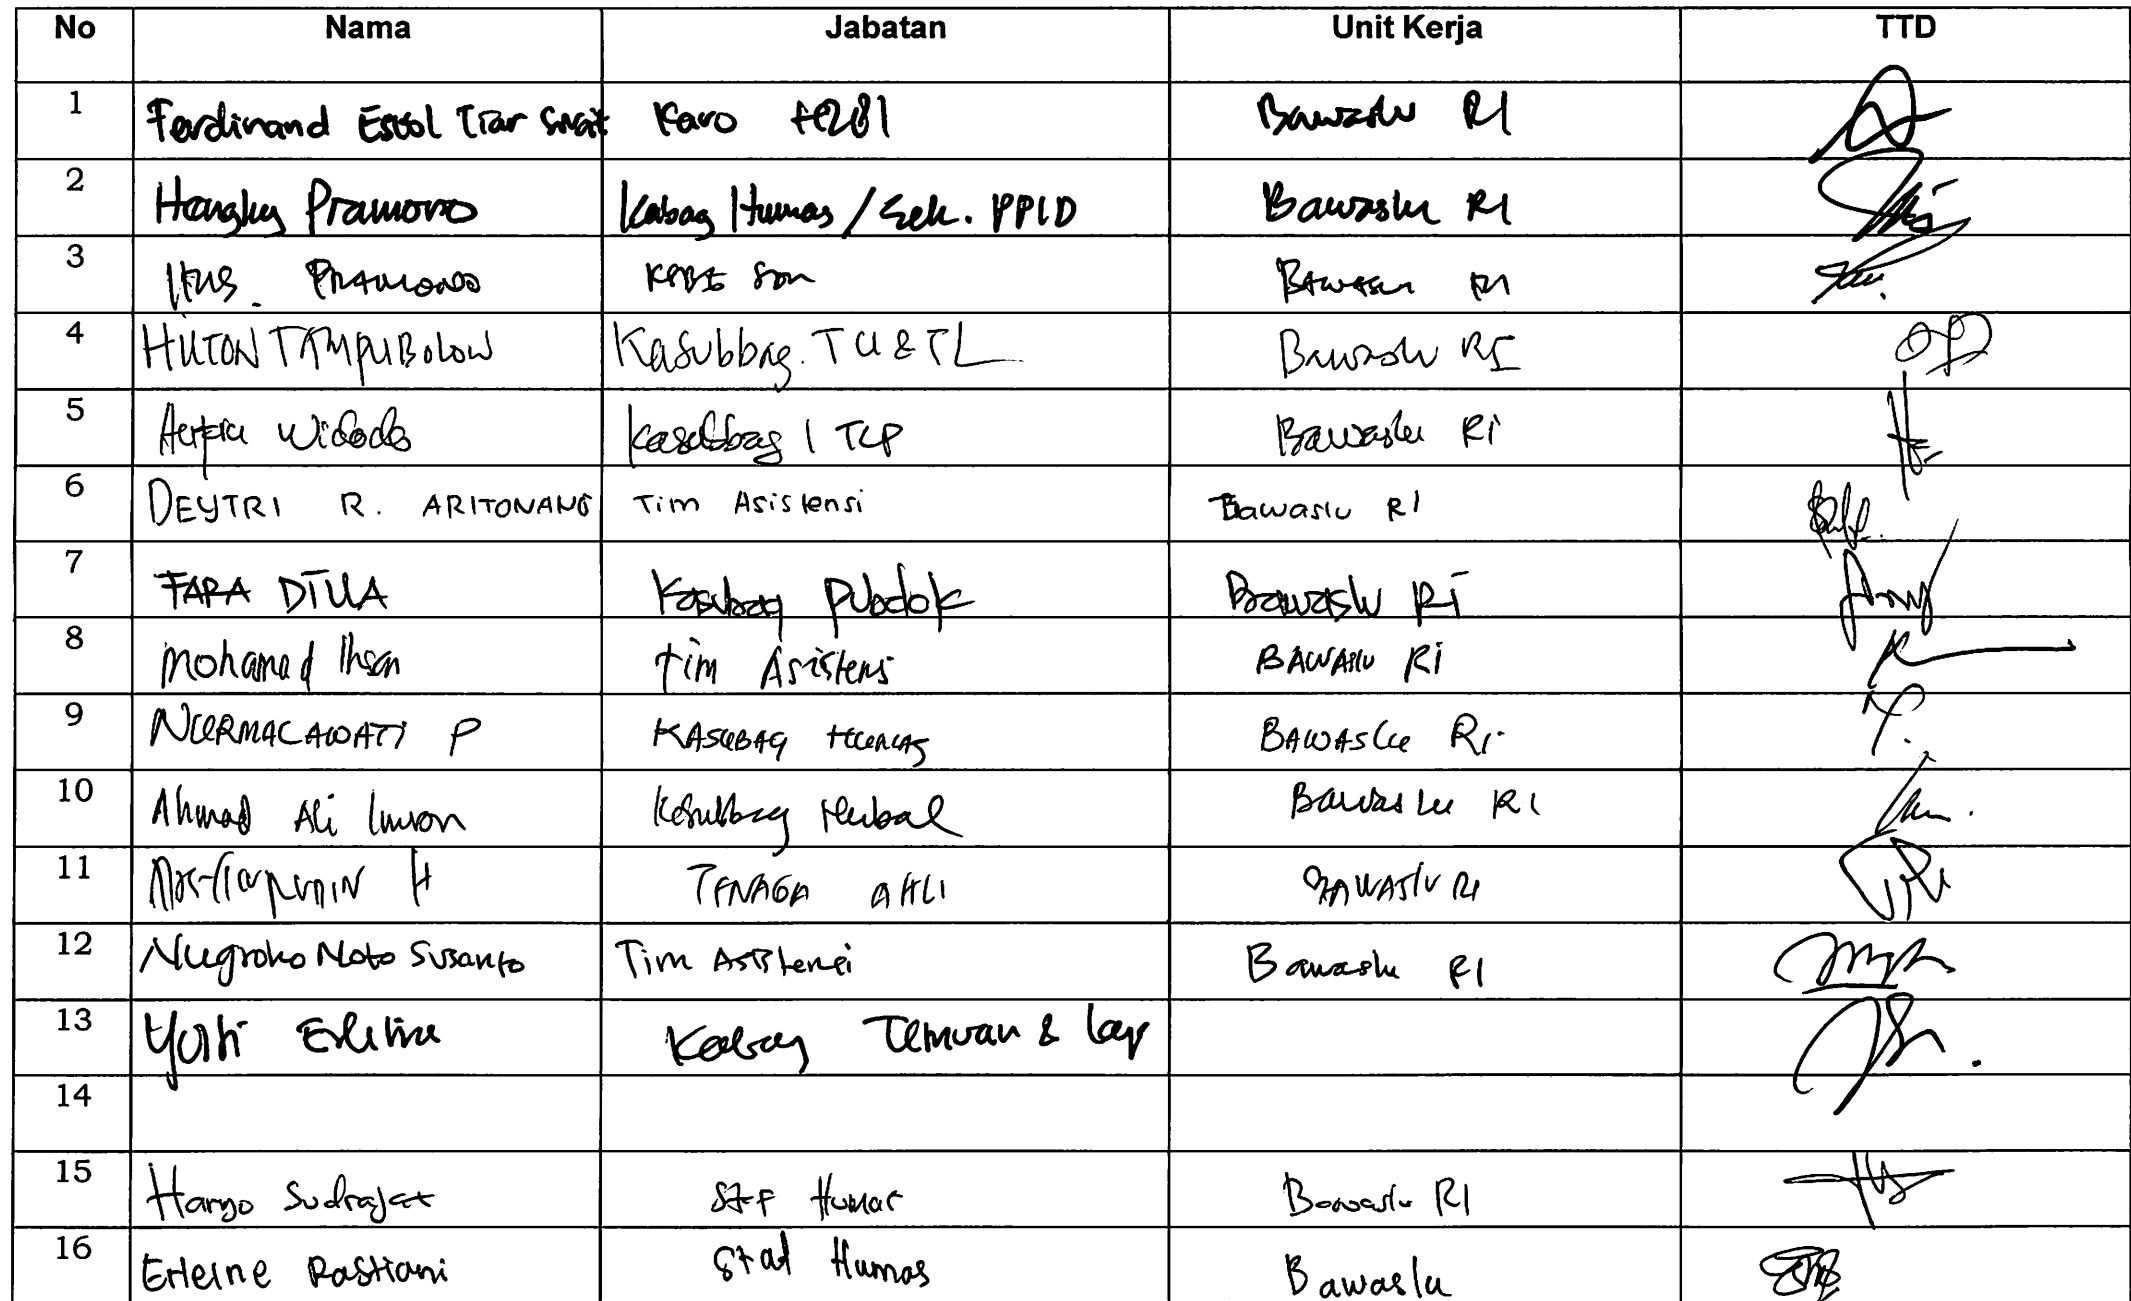 No Nama Jabatan Unit Kerja TTD
1 Ferdinand Eskol Tiar Karo Bawaslu RI
2 Hengky Pramono Kabag Humas / Sek. PPID Bawaslu RI
3 Pramono Bawaslu RI
4 HILTON TAMPUBOLON Kasubbag. TU & TL Bawaslu RI
5 Widodo Kasubbag TLP Bawaslu RI
6 DEYTRI R. ARITONANG Tim Asistensi Bawaslu RI
7 FARA DILLA Kasubag Pubdok Bawaslu Ri
8 Mohamad Ihsan Tim Asistensi BAWASlu Ri
9 NURMALAWATI P KASUBAG HUMAS BAWASLu Ri
10 Ahmad Ali Imron Kasubbag Hubal Bawaslu RI
11 H TENAGA AHLI BAWASlu RI
12 Nugroho Noto Susanto Tim Asistensi Bawaslu RI
13 Kabag Temuan & Lap
14
15 Haryo Sudrajat Humas Bawaslu RI
16 Erleine Rastiani Humas Bawaslu